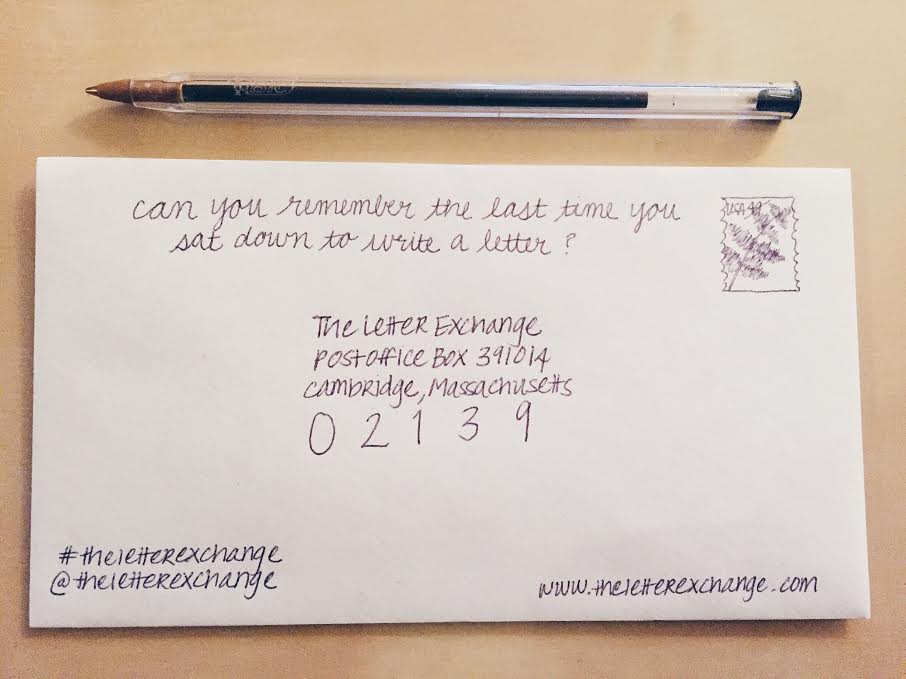 BIC
can you remember the last time you
sat down to write a letter?
USA 49
The Letter Exchange
Post office Box 391014
Cambridge, Massachusetts
02139
#theletterexchange
@theletterexchange
www.theletterexchange.com